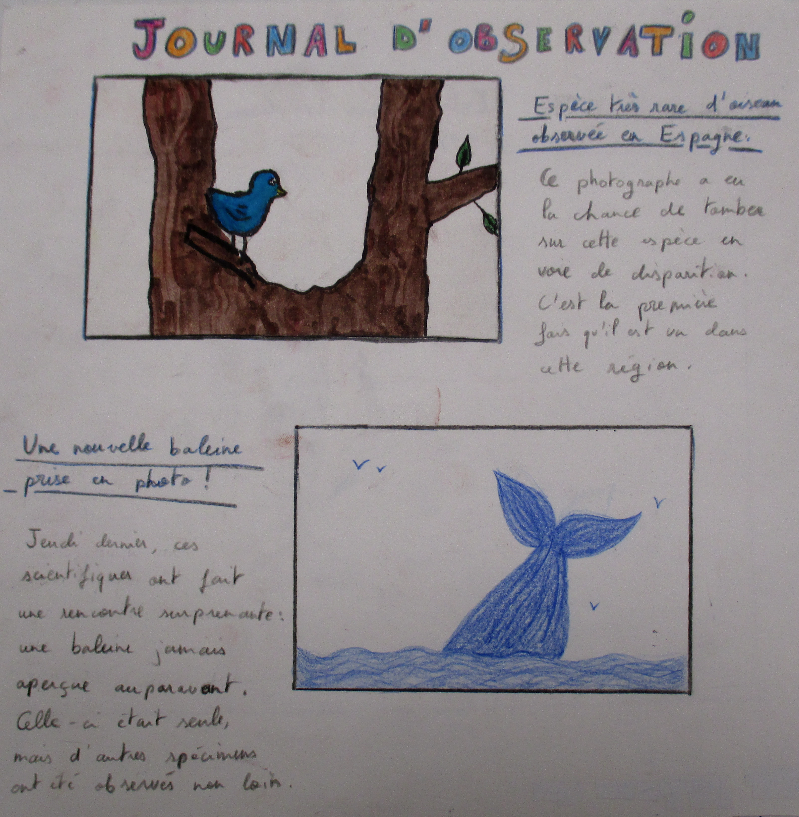 JOURNAL D'OBSERVATION
Espèce très rare d'oiseau
observée en Espagne.
Ce photographe a eu
la chance de tomber
sur cette espèce en
voie de disparition.
C'est la première
fois qu'il est vu dans
cette région.
Une nouvelle baleine
prise en photo !
Jeudi dernier, ces
scientifiques ont fait
une rencontre surprenante :
une baleine jamais
aperçue auparavant.
Celle-ci était seule,
mais d'autres spécimens
ont été observés non loin.